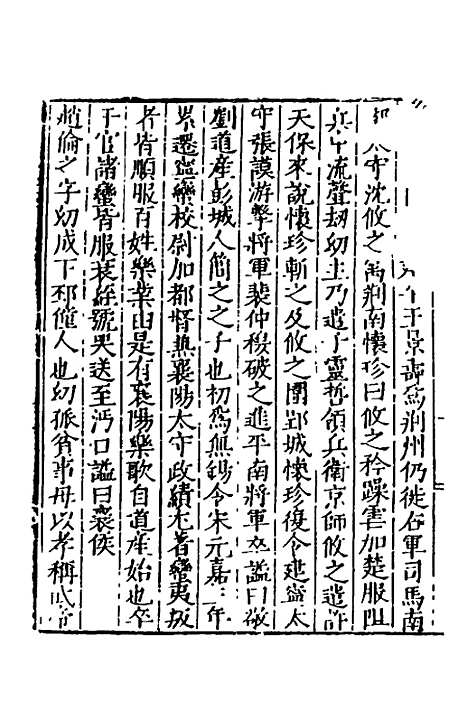 王景素為荆州仍徙右軍司馬南
太守沈攸之為荆南懷珍曰攸之矜躁害加楚服阻
兵中流聲劫幼主乃遣子靈哲領兵衛京師攸之遣許
天保來說懷珍斬之及攸之圍郢城懷珍復令建寧太
守張謨游擊將軍裴仲穆破之進平南將軍卒謚曰敬
劉道産彭城人簡之之子也初為無錫令宋元嘉三年
累遷寧蠻校尉加都督無襄陽太守政績尤著蠻夷叛
者皆順服百姓樂業由是有襄陽樂歌自道産始也卒
于官諸蠻皆服衰絰號哭送至沔口謚曰襄侯
趙倫之字幼成下邳僮人也幼孤貧事母以孝稱武帝